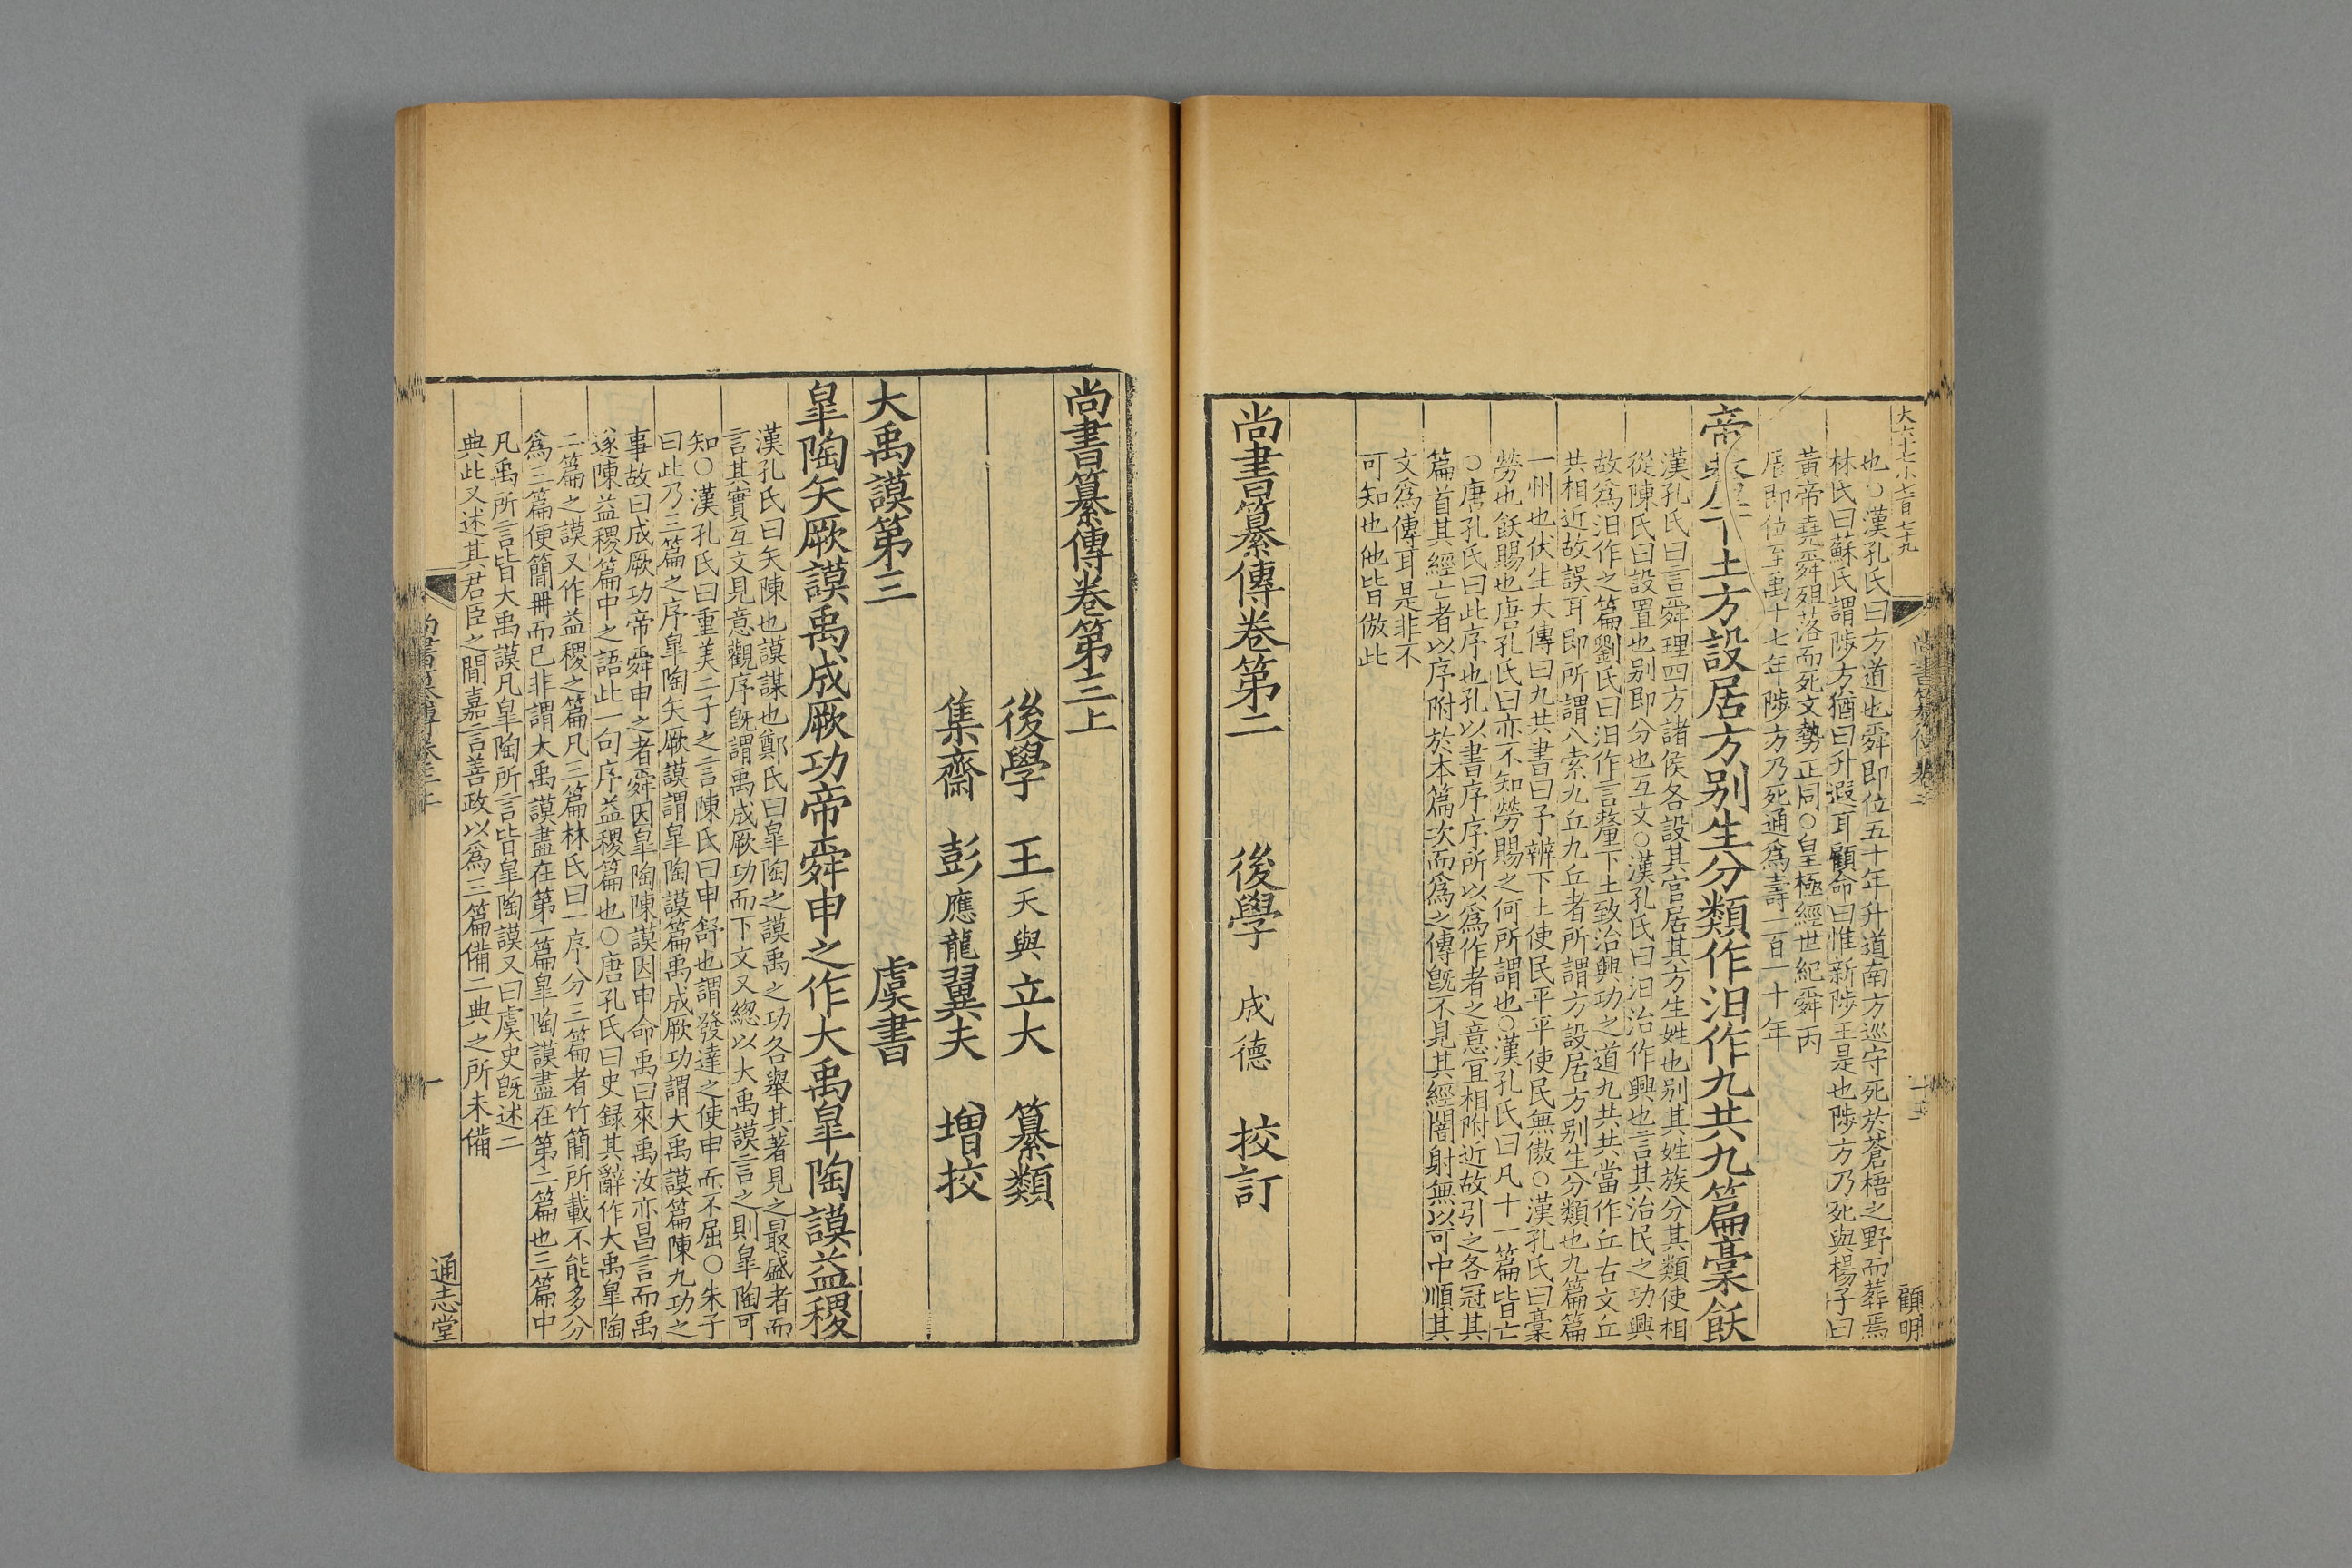 大六十七小七百七十九
顧明
也○漢孔氏曰方道也舜即位五十年升道南方巡守死於蒼梧之野而葬焉
林氏曰蘇氏謂陟方猶曰升遐耳顧命曰惟新陟王是也陟方乃死與楊子曰
黃帝堯舜殂落而死文勢正同○皇極經世紀舜丙
辰即位至禹十七年陟方乃死通爲壽一百一十年
帝土方設居方别生分類作汩作九共九篇稾飫
漢孔氏曰言舜理四方諸侯各設其官居其方生姓也别其姓族分其類使相
從陳氏曰設置也别即分也互文○漢孔氏曰汩治作興也言其治民之功興
故爲汩作之篇劉氏曰汩作言釐下土致治興功之道九共共當作丘古文丘
共相近故誤耳即所謂八索九丘九丘者所謂方設居方别生分類也九篇篇
一州也伏生大傳曰九共書曰予辨下土使民平平使民無傲○漢孔氏曰稾
勞也飫賜也唐孔氏曰亦不知勞賜之何所謂也○漢孔氏曰凡十一篇皆亡
○唐孔氏曰此序也孔以書序序所以爲作者之意宜相附近故引之各冠其
篇首其經亡者以序附於本篇次而爲之傳旣不見其經闇射無以可中順其
文爲傳耳是非不
可知也他皆倣此
尚書纂傳卷第二 後學 成德 挍訂
尚書纂傳卷第三上
後學 王天與立大 纂類
集齋 彭應龍翼夫 增挍
大禹謨第三 虞書
皐陶矢厥謨禹成厥功帝舜申之作大禹皐陶謨益稷
漢孔氏曰矢陳也謨謀也鄭氏曰皐陶之謨禹之功各舉其著見之最盛者而
言其實互文見意觀序旣謂禹成厥功而下文又緫以大禹謨言之則皐陶可
知○漢孔氏曰重美二子之言陳氏曰申舒也謂發達之使申而不屈○朱子
曰此乃三篇之序皐陶矢厥謨謂皐陶謨篇禹成厥功謂大禹謨篇陳九功之
事故曰成厥功帝舜申之者舜因皐陶陳謨因申命禹曰來禹汝亦昌言而禹
遂陳益稷篇中之語此一句序益稷篇也○唐孔氏曰史録其辭作大禹皐陶
二篇之謨又作益稷之篇凡三篇林氏曰一序分三篇者竹簡所載不能多分
爲三篇便簡冊而已非謂大禹謨盡在第一篇皐陶謨盡在第二篇也三篇中
凡禹所言皆大禹謨凡皐陶所言皆皐陶謨又曰虞史旣述二
典此又述其君臣之間嘉言善政以爲三篇備二典之所未備
尚書纂傳卷三上 一
通志堂